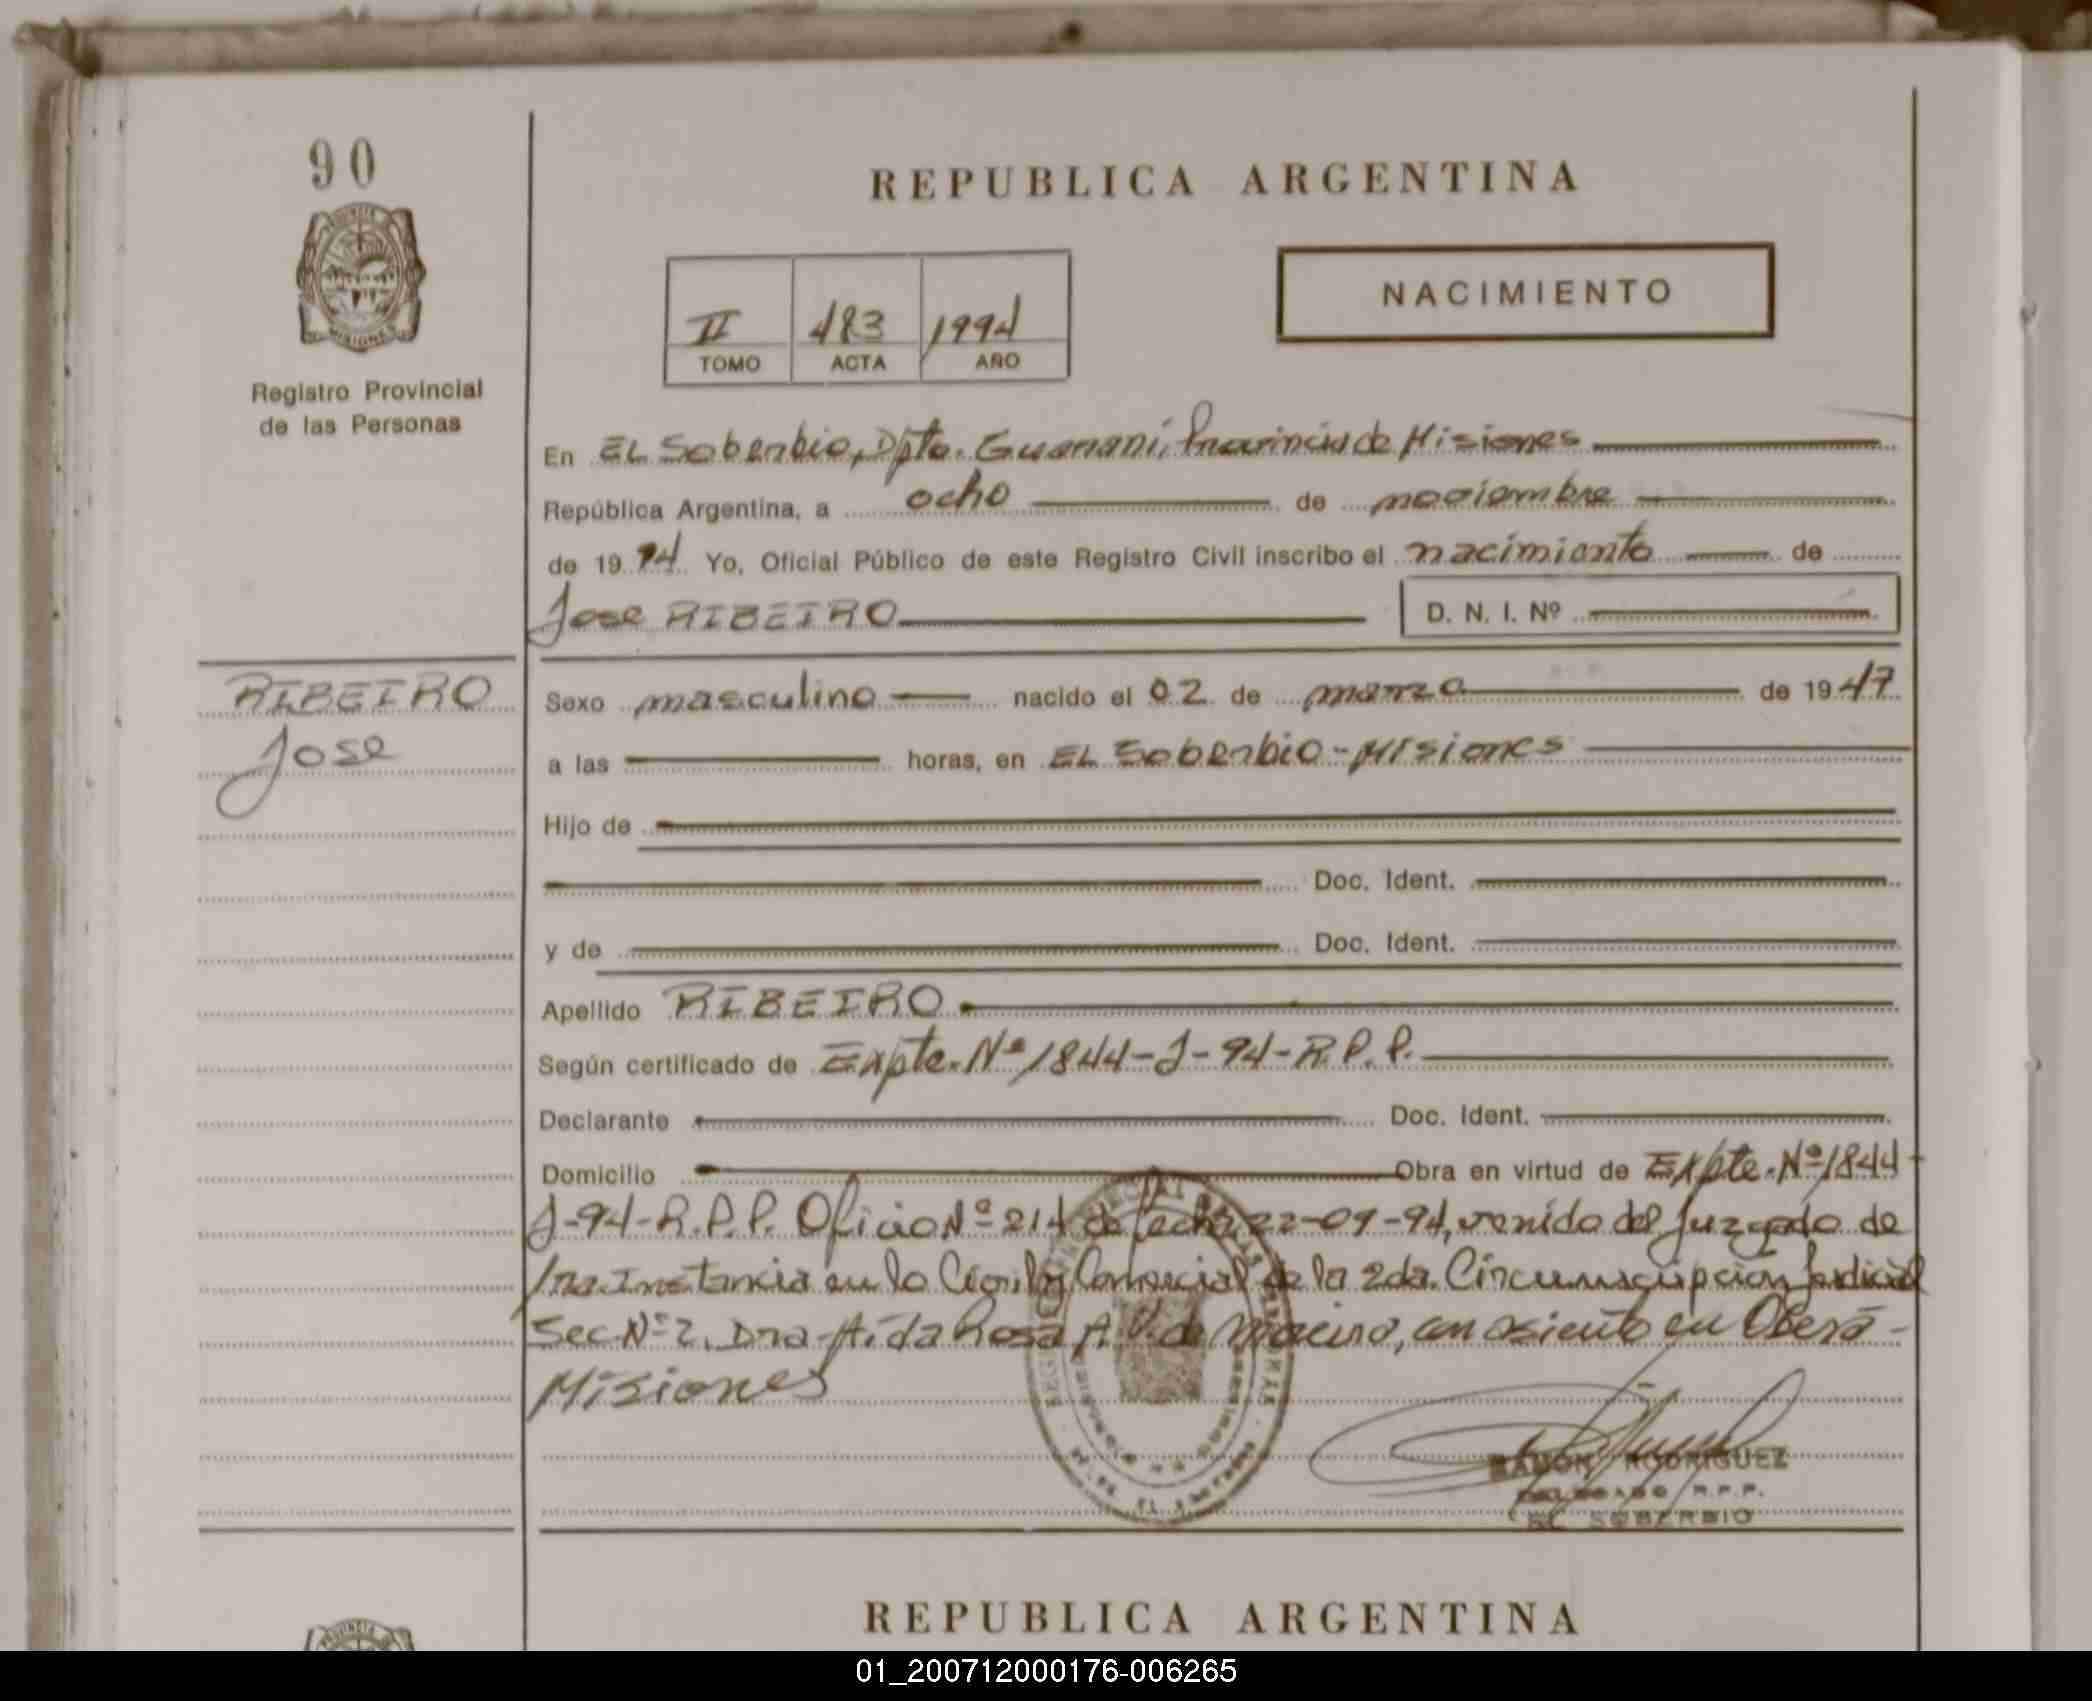 90
REPUBLICA ARGENTINA
NACIMIENTO
II 483 1994
TOMO ACTA AÑO
PROVINCIA MISIONES
Registro Provincial
de las Personas
En EL Soberbio, Dpto. Guarani, Provincia de Misiones
República Argentina, a ocho de noviembre
de 1994 Yo, Oficial Público de este Registro Civil inscribo el nacimiento de
Jose RIBEIRO D. N. I. Nº
RIBEIRO
Jose
Sexo masculino nacido el 02 de marzo de 1947
a las horas, en EL Soberbio-Misiones
Hijo de
Doc. Ident.
y de Doc. Ident.
Apellido RIBEIRO
Según certificado de Expte. Nº 1844-J-94-R.P.P.
Declarante Doc. Ident.
Domicilio Obra en virtud de Expte. Nº 1844-
J-94-R.P.P. Oficio Nº 214 de fecha 22-09-94, venido del Juzgado de
1ra Instancia en lo Civil y Comercial de la 2da. Circunscripcion Judicial
Sec. Nº 2, Dra. Aida Rosa A. V. de con asiento en Oberá-
Misiones
RAMON RODRIGUEZ
DELEGADO R.P.P.
EL SOBERBIO
REPUBLICA ARGENTINA
PROVINCIA
01_200712000176-006265